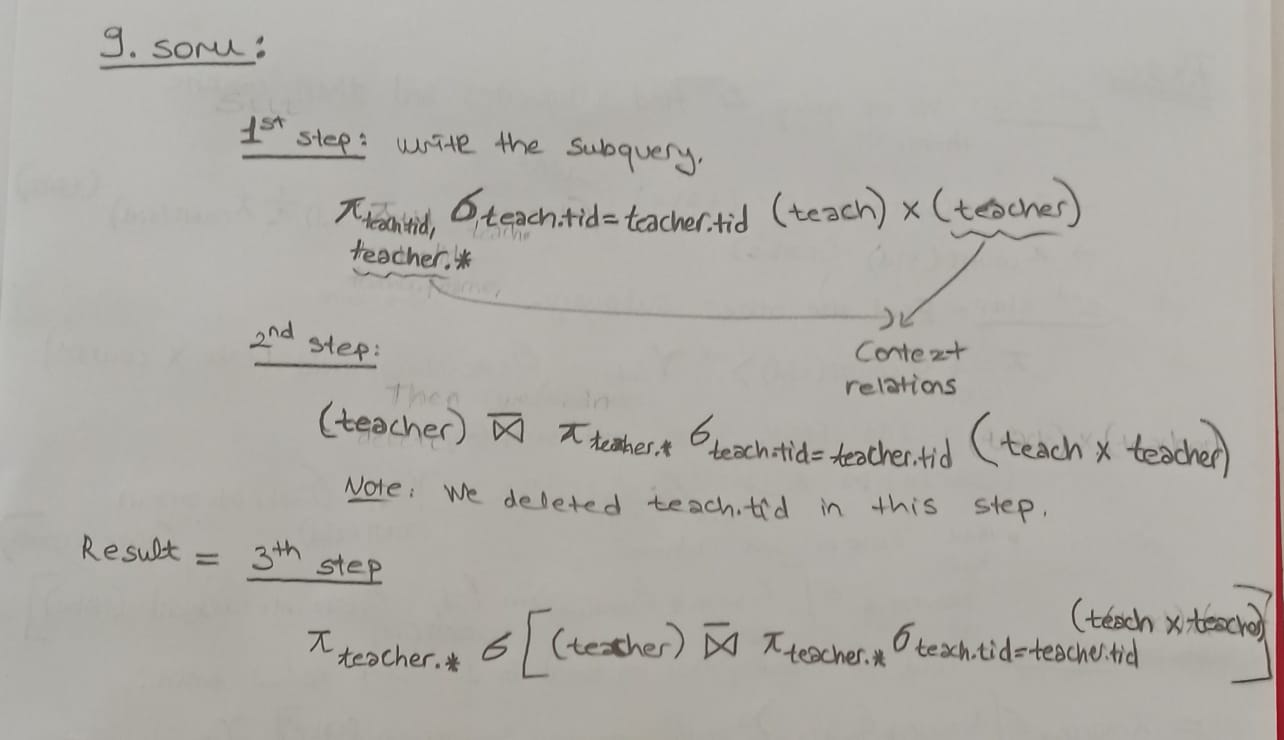 9. soru:
1st step: write the subquery.
π teach.tid, teacher.* σ teach.tid=teacher.tid (teach) x (teacher)
Context
relations
2nd step:
(teacher) ⋈̅ π teacher.* σ teach.tid=teacher.tid (teach x teacher)
Note: We deleted teach.tid in this step.
Result = 3th step
π teacher.* σ [(teacher) ⋈̅ π teacher.* σ teach.tid=teacher.tid (teach x teacher)]